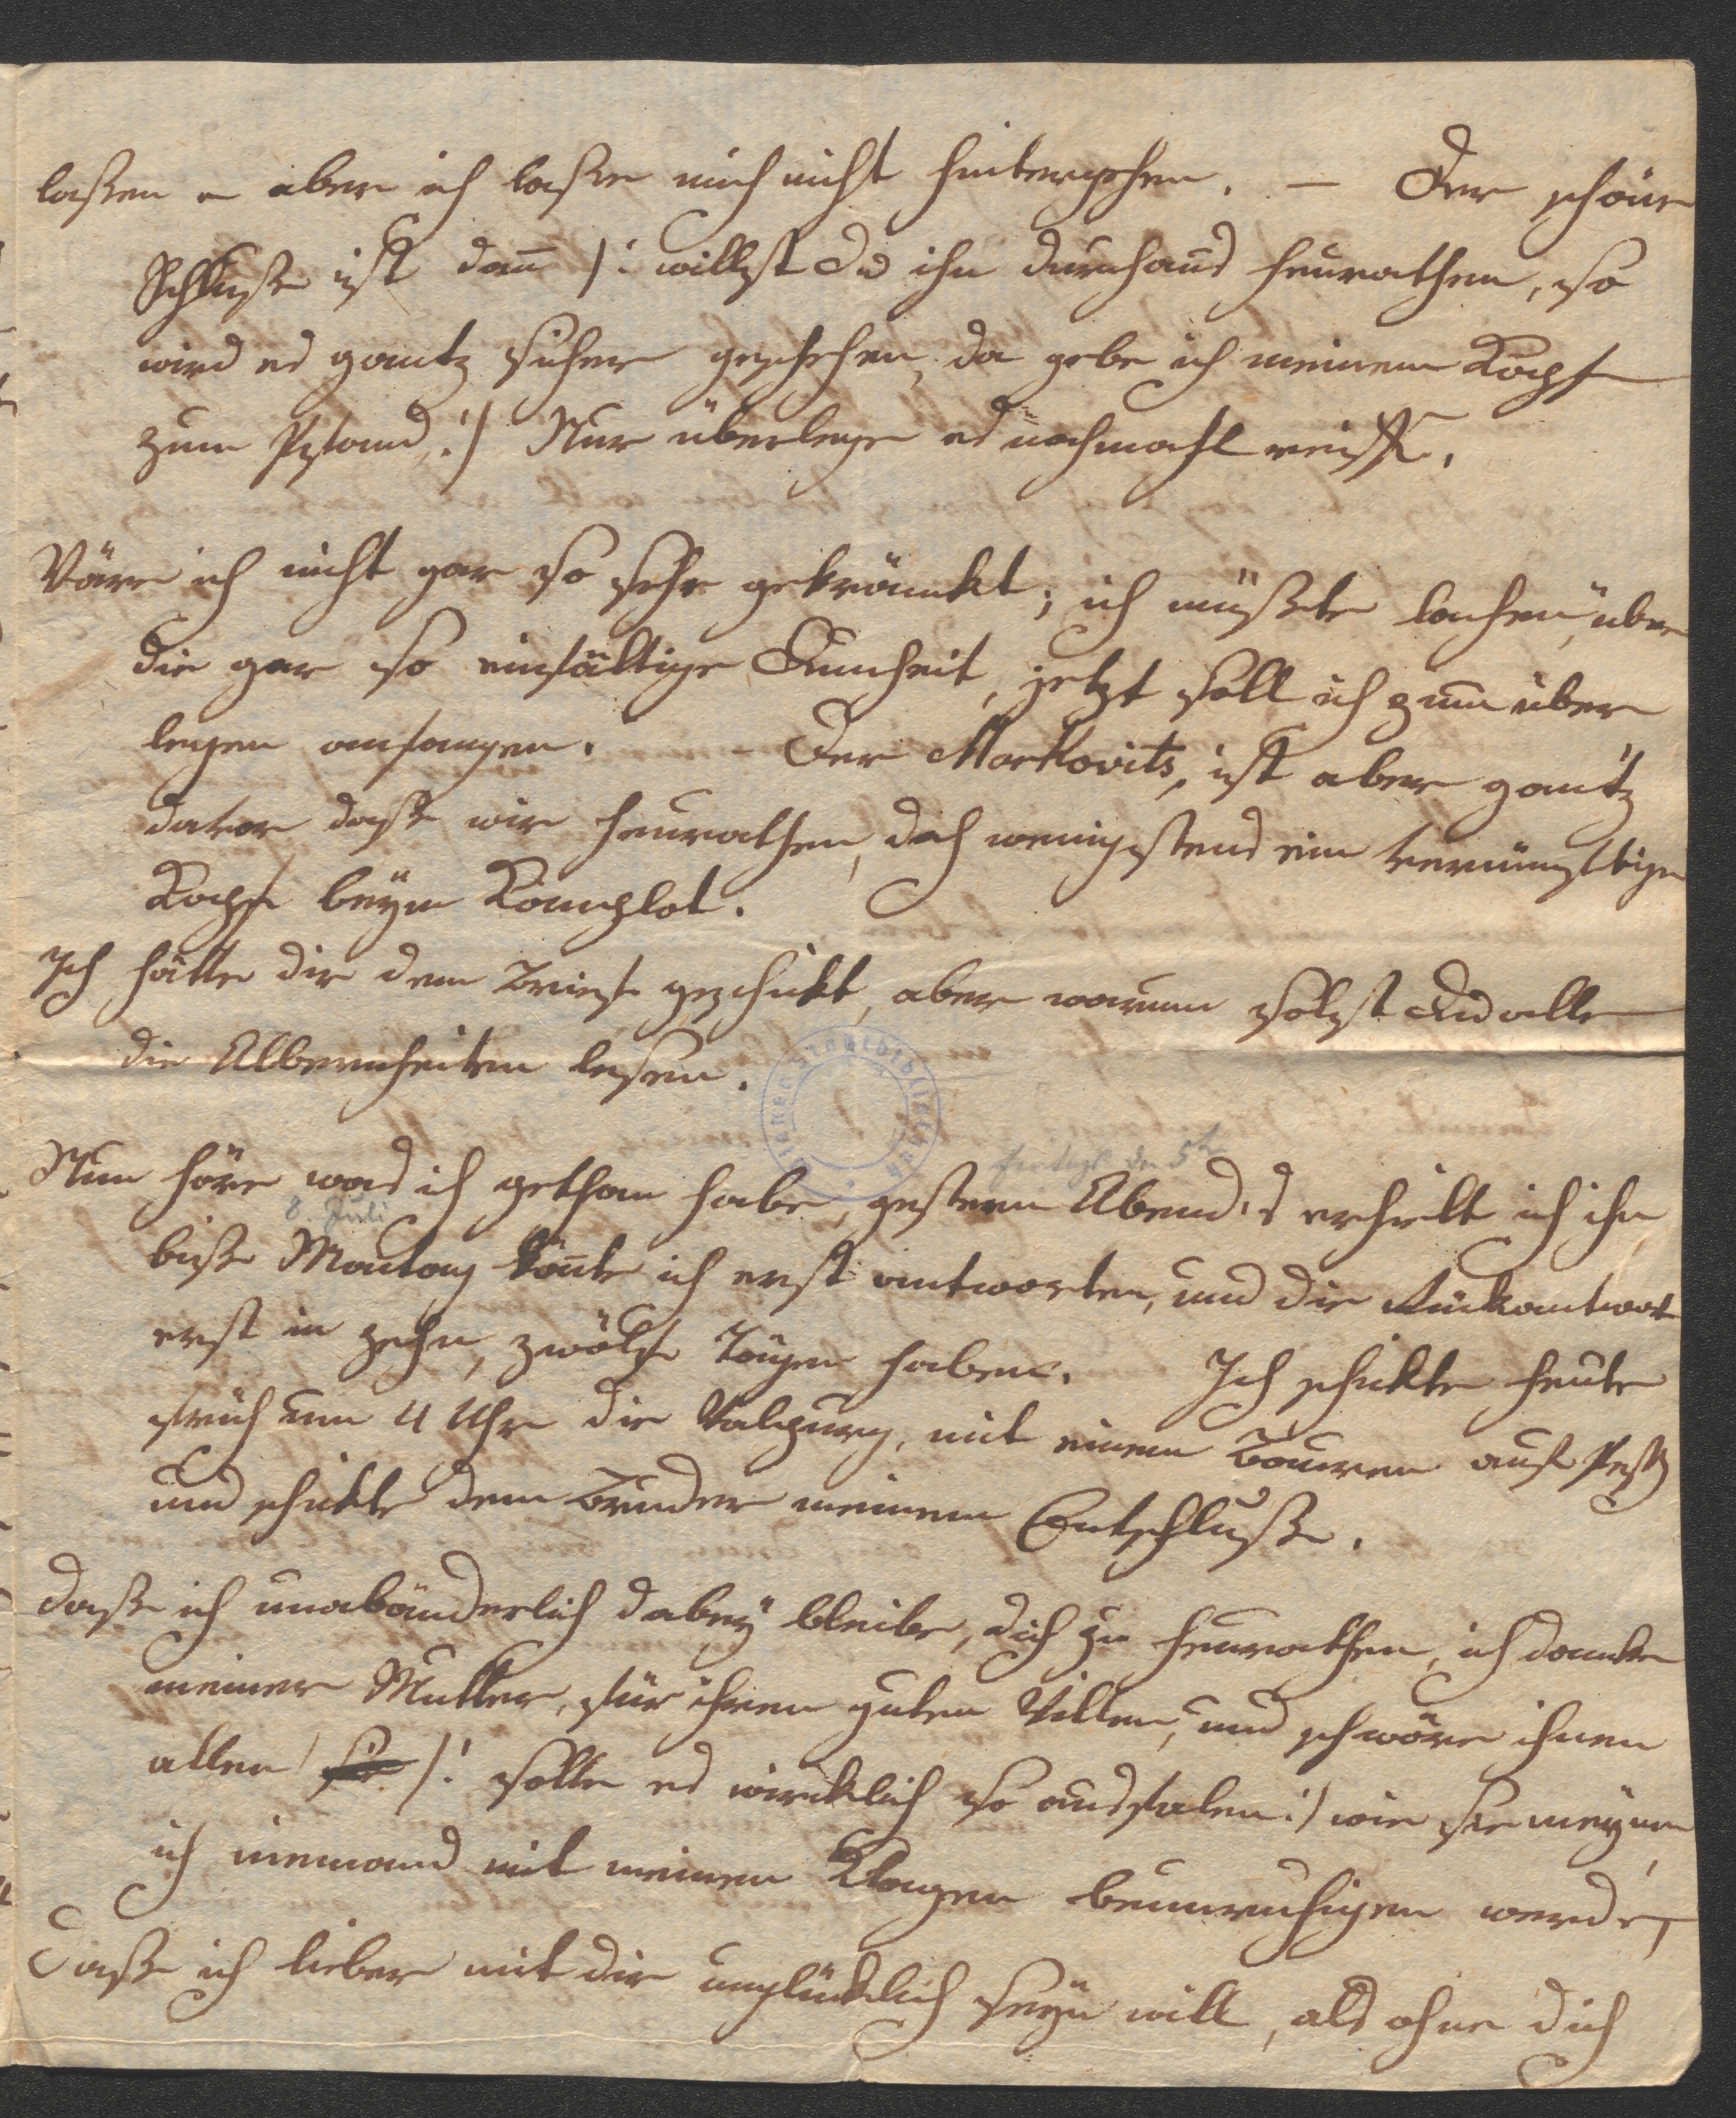 laßen – aber ich laße mich nicht hintergehen. — Der schöne
Schluße ist dañ /: willst Du ihn durchaus heurathen, so
wird es gantz sicher geschehen, da gebe ich meinem Kopf
zum Pfand, :/ Nur überlege es nochmahl reiff.
Wäre ich nicht gar so sehr gekränckt; ich müßte lachen, über
die gar so einfältige Dumheit, jetzt soll ich zum über
legen anfangen. - Der Markovits, ist aber gantz
davor daß wir heurathen, doch wenigstens ein vernünftiger
Kopf beym Komplot.
Ich hätte dir dem Brief geschickt, aber warum solst Du alle
die Albernheiten lesen.
Wiener Stadtbibliothek
freitags den 5t
Nun höre was ich gethan habe, gestern Abend's erhielt ich ihn
8. Juli
biß Montag köñte ich erst antworten, und die Rückantwort
erst in zehn, zwölf Tägen haben. Ich schickte heute
früh um 4 Uhr die Valpurg, mit einem Bauren auf Pest
und schickte dem Bruder meinem Entschluße.
daß ich unabänderlich dabey bleibe, dich zu heurathen, ich dancke
meiner Mutter, für ihren guten Willen, und schwöre ihnen
allen /: solte es wircklich so ausfalen :/ wie sie meynen,
ich niemand mit meinen Klagen beunruhigen werde,
Daß ich lieber mit dir unglücklich seyn will, als ohne dich